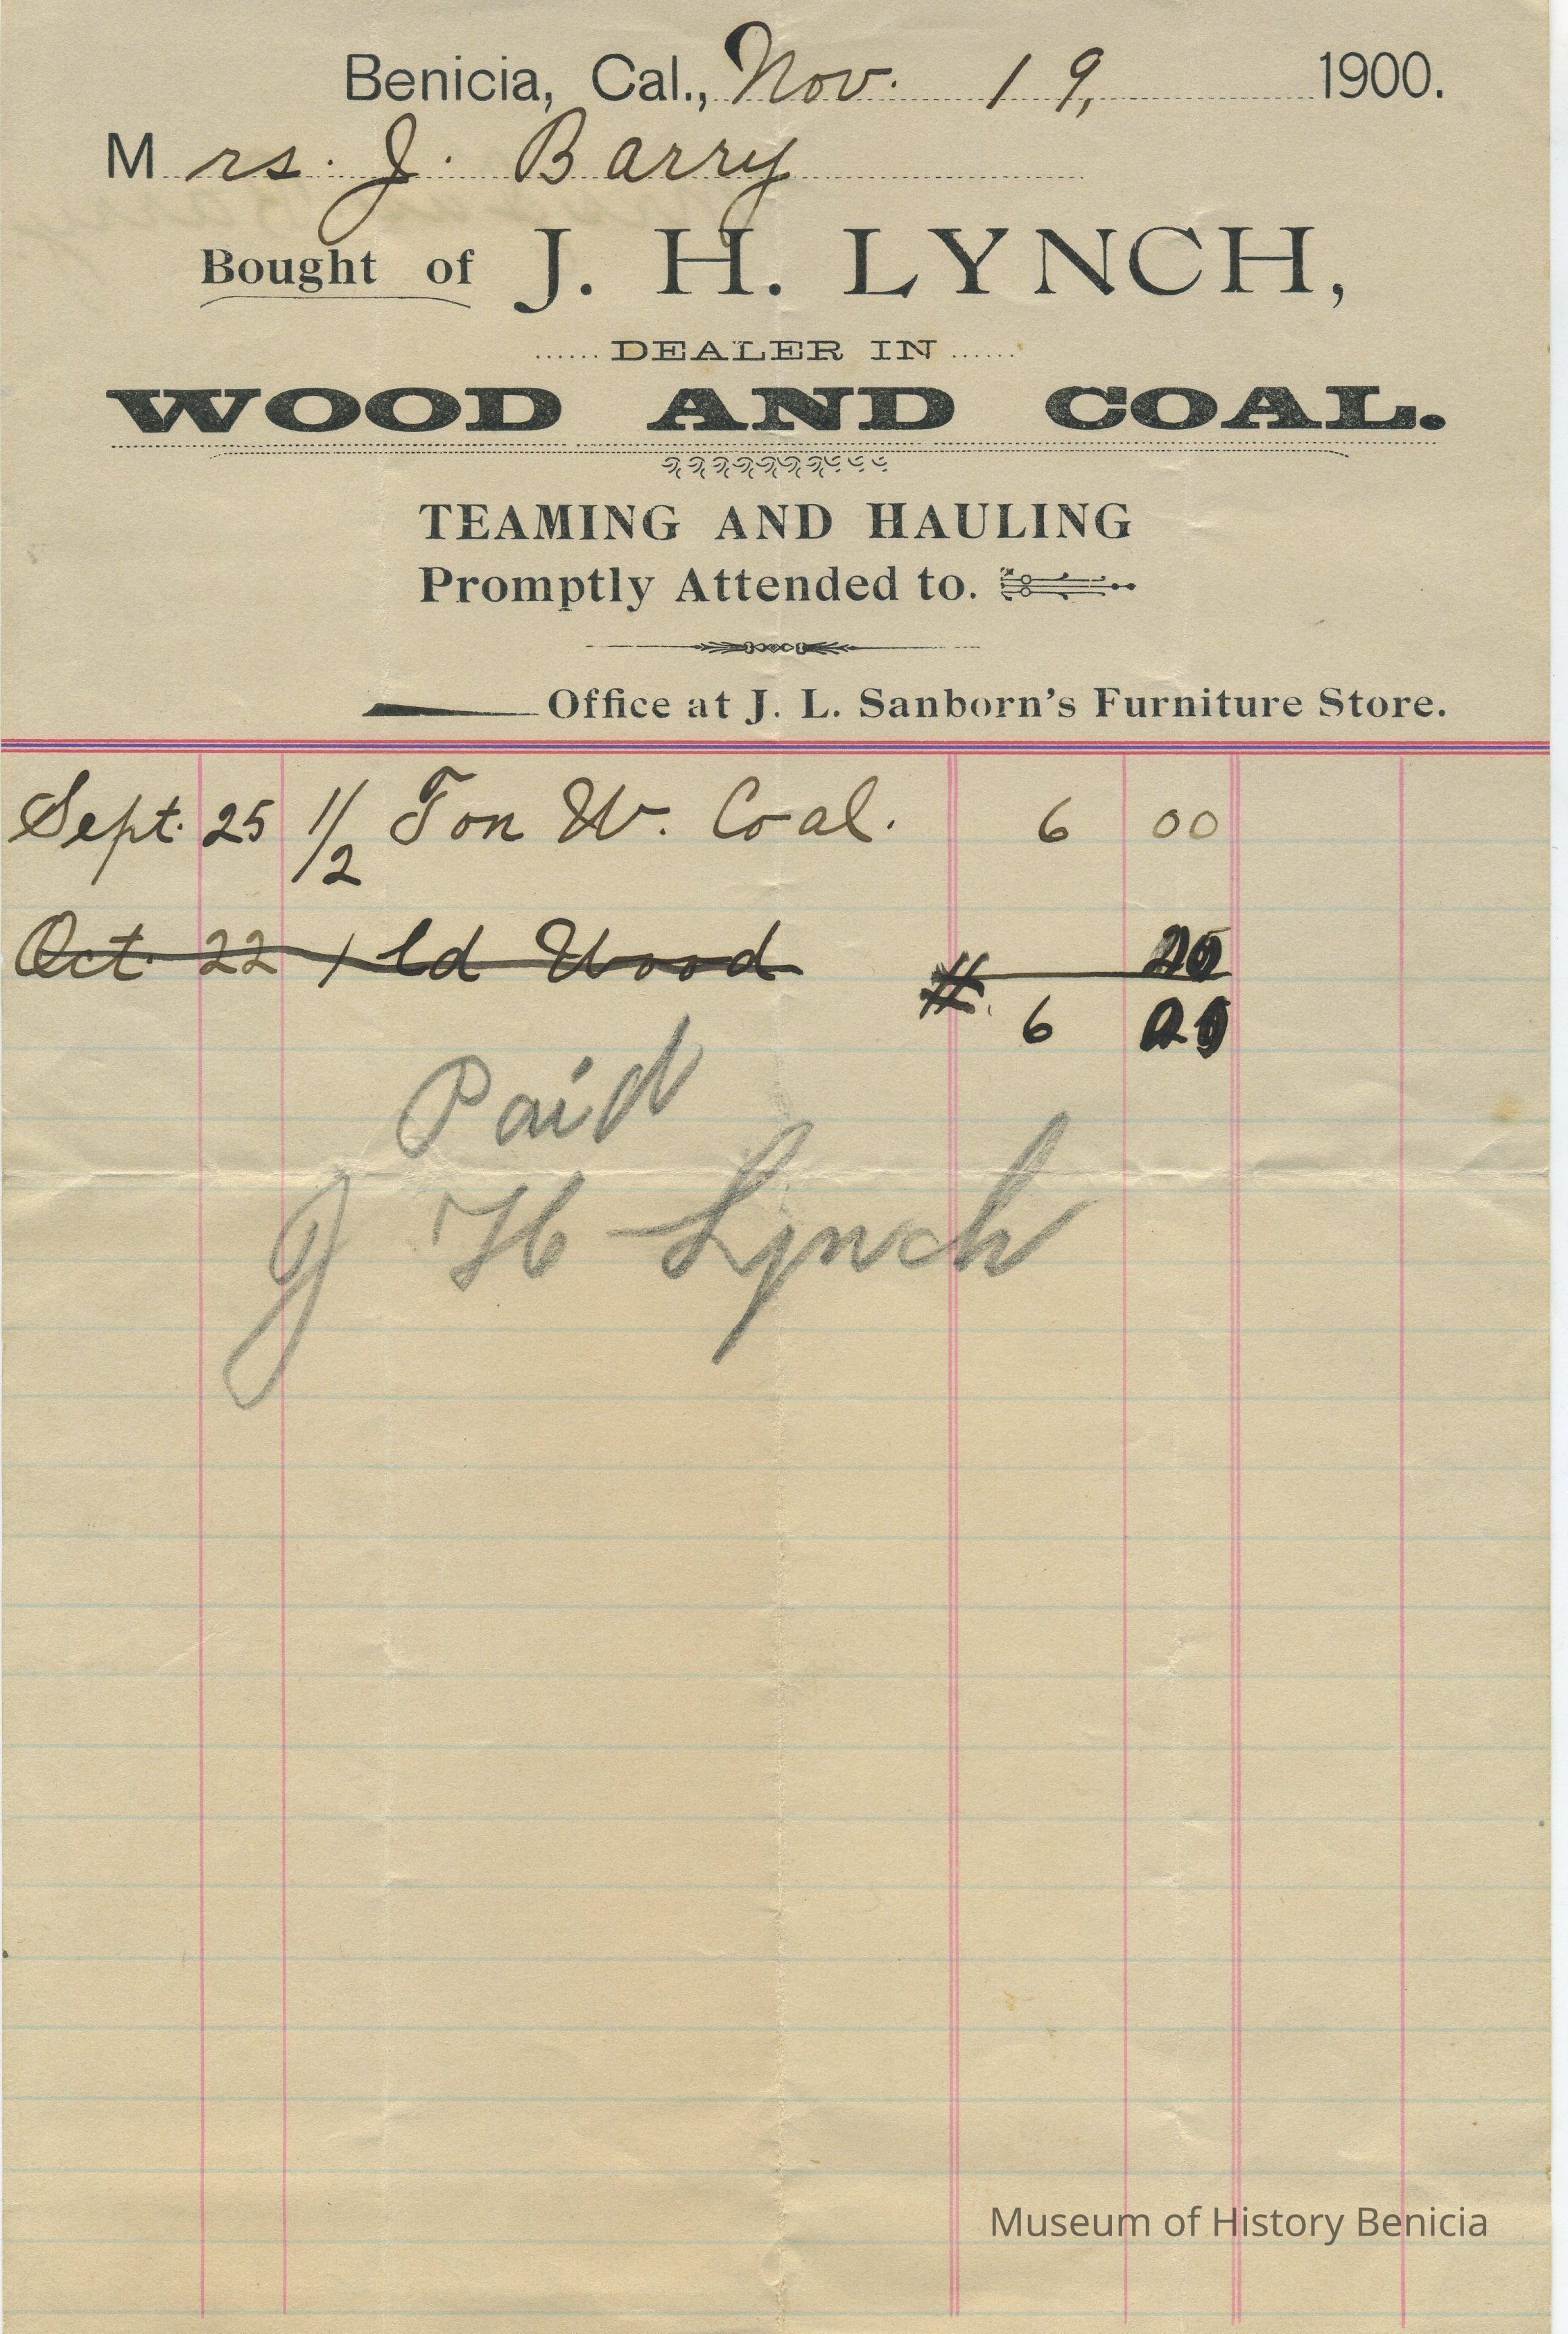 Benicia, Cal., Nov. 19, 1900.
Mrs. J. Barry
Bought of J. H. LYNCH,
DEALER IN
WOOD AND COAL.
TEAMING AND HAULING
Promptly Attended to.
Office at J. L. Sanborn's Furniture Store.
Sept. 25 1/2 Ton W. Coal. 6 00
Oct. 22 1 ld Wood
6
Paid
J H Lynch
Museum of History Benicia